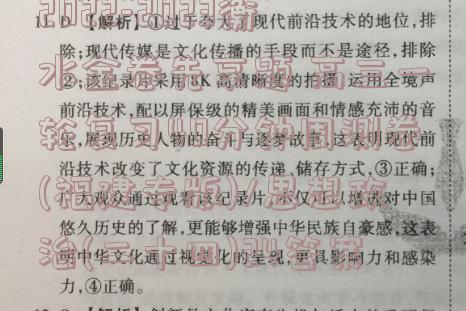 11. D 【解析】①过于夸大了现代前沿技术的地位,排
除;现代传媒是文化传播的手段而不是途径,排除
②;该纪录片采用8K高清晰度的拍摄,运用全境声
前沿技术,配以屏保级的精美画面和情感充沛的音
乐,展现历史人物的奋斗与逐梦故事,这表明现代前
沿技术改变了文化资源的传递、储存方式,③正确;
广大观众通过观看该纪录片,不仅可以增进对中国
悠久历史的了解,更能够增强中华民族自豪感,这表
明中华文化通过视觉化的呈现,更具影响力和感染
力,④正确。
2022-2023学
水金卷先享题 高三一
轮复习40分钟周测卷
(福建专版)/思想政
治(二十四)31答案